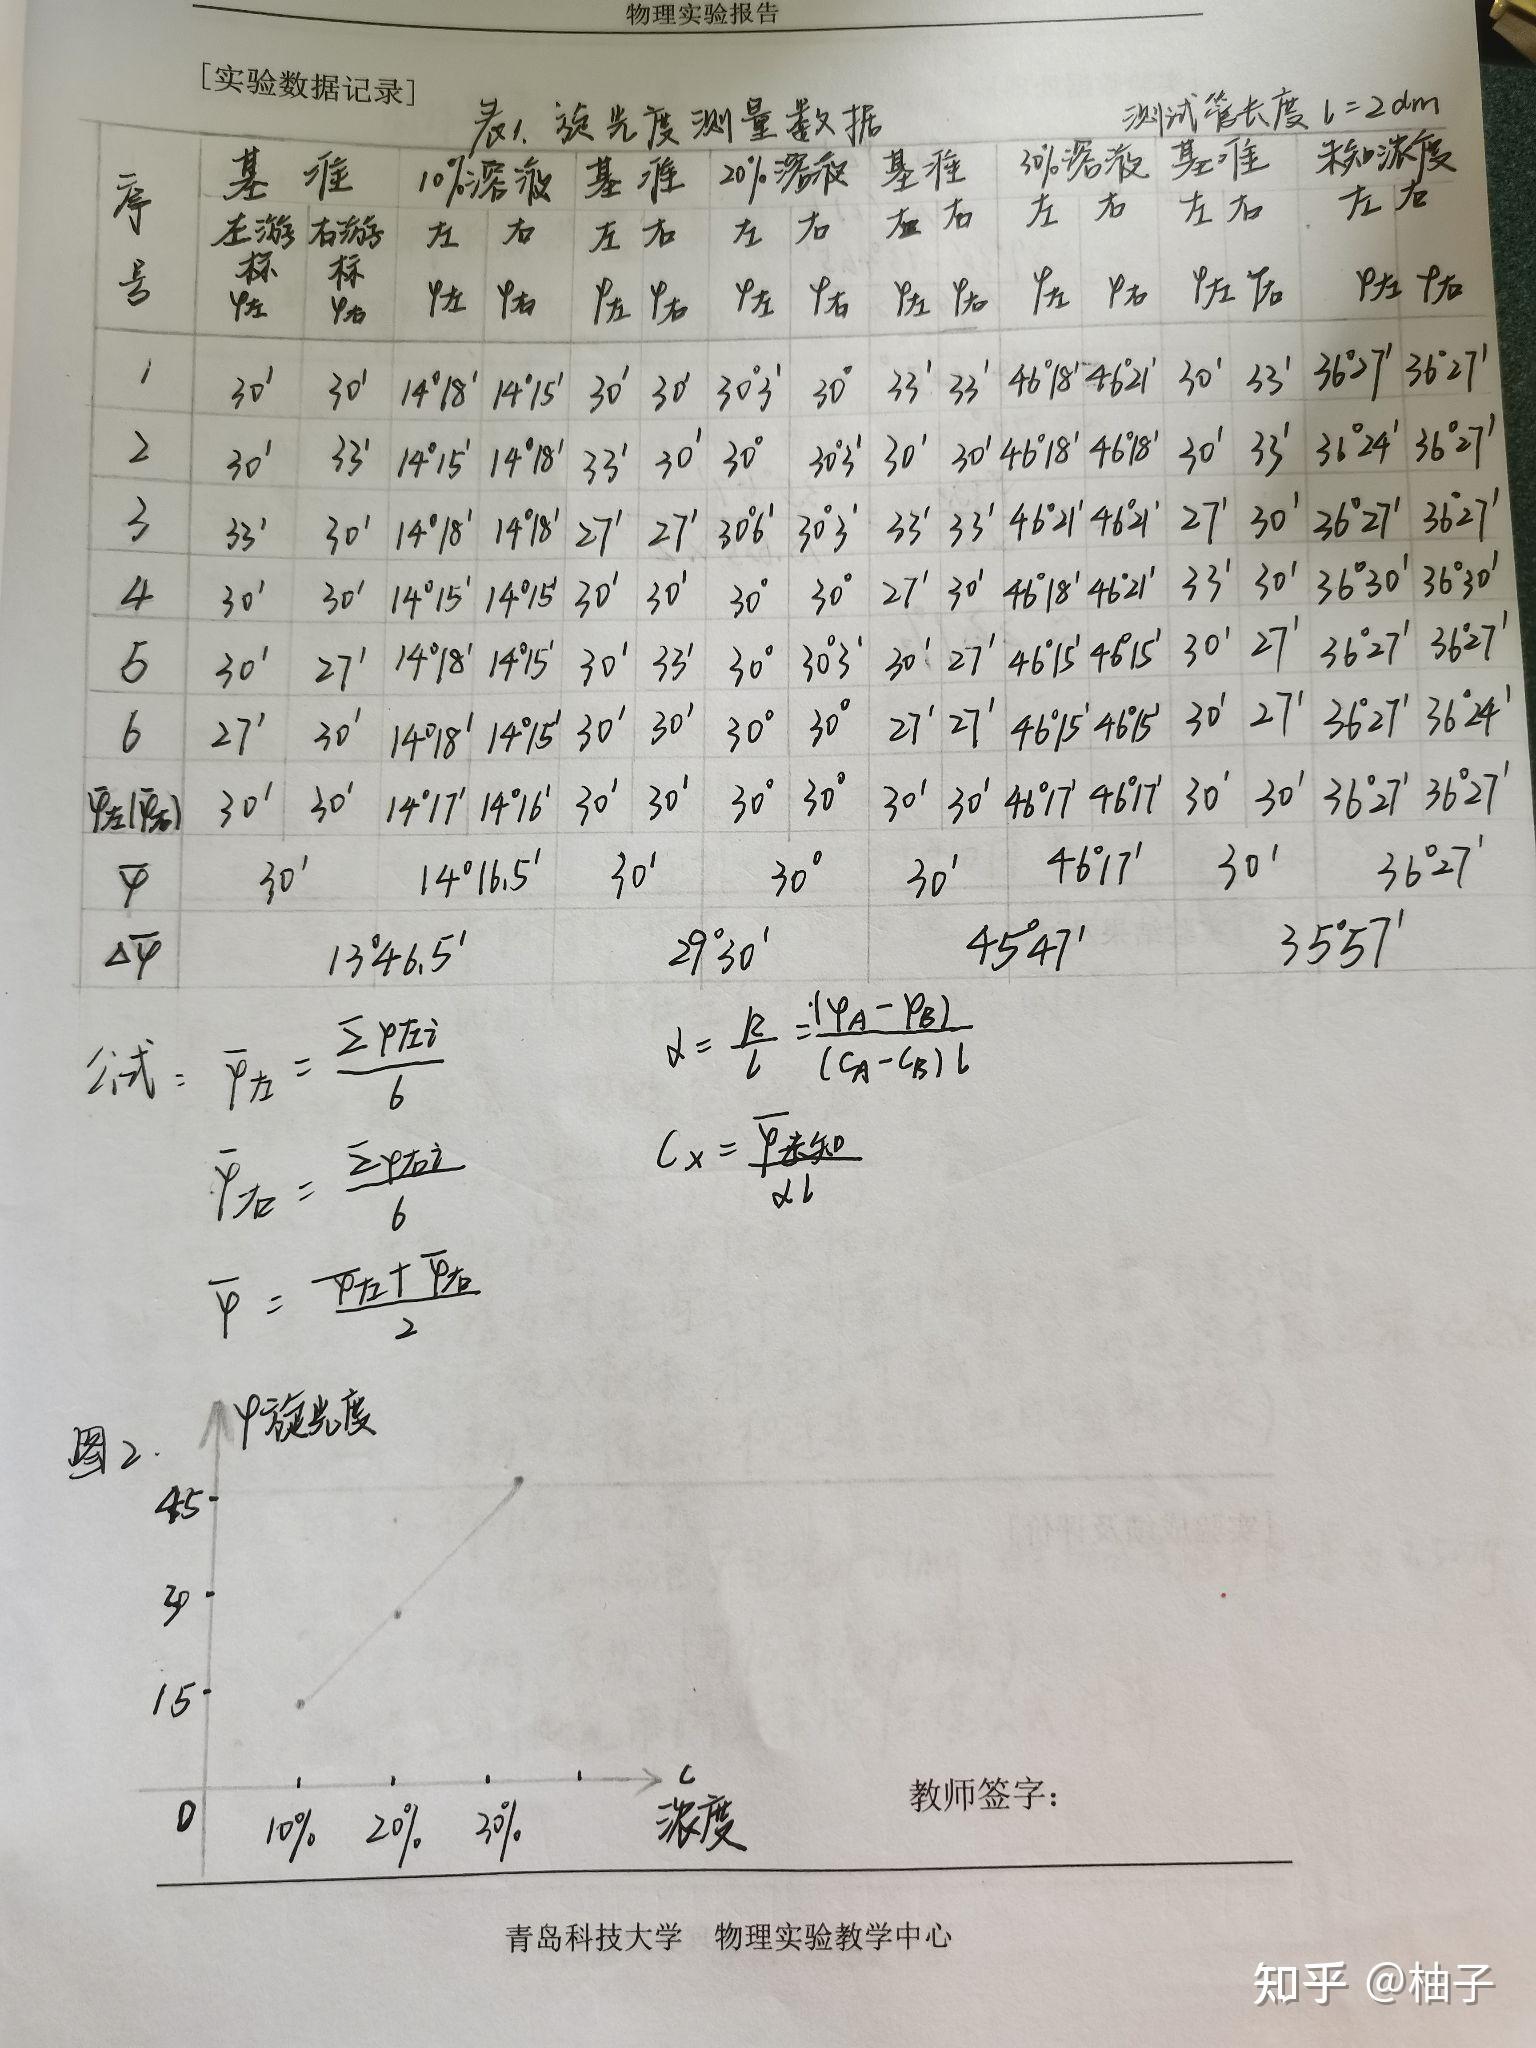 物理实验报告
[实验数据记录]
表1. 旋光度测量数据 测试管长度 l=2dm
序号 基准 10%溶液 基准 20%溶液 基准 30%溶液 基准 未知浓度
左游标 右游标 左 右 左 右 左 右 左 右 左 右 左 右 左 右
φ左 φ右 φ左 φ右 φ左 φ右 φ左 φ右 φ左 φ右 φ左 φ右 φ左 φ右 φ左 φ右
1 30' 30' 14°18' 14°15' 30' 30' 30°3' 30° 33' 33' 46°18' 46°21' 30' 33' 36°27' 36°27'
2 30' 33' 14°15' 14°18' 33' 30' 30° 30°3' 30' 30' 46°18' 46°18' 30' 33' 36°24' 36°27'
3 33' 30' 14°18' 14°18' 27' 27' 30°6' 30°3' 33' 33' 46°21' 46°21' 27' 30' 36°27' 36°27'
4 30' 30' 14°15' 14°15' 30' 30' 30° 30° 27' 30' 46°18' 46°21' 33' 30' 36°30' 36°30'
5 30' 27' 14°18' 14°15' 30' 33' 30° 30°3' 30' 27' 46°15' 46°15' 30' 27' 36°27' 36°27'
6 27' 30' 14°18' 14°15' 30' 30' 30° 30° 27' 27' 46°15' 46°15' 30' 27' 36°27' 36°24'
φ̄左(φ̄右) 30' 30' 14°17' 14°16' 30' 30' 30° 30° 30' 30' 46°17' 46°17' 30' 30' 36°27' 36°27'
φ̄ 30' 14°16.5' 30' 30° 30' 46°17' 30' 36°27'
Δφ̄ 13°46.5' 29°30' 45°47' 35°57'
公式: φ̄左 = Σφ左i / 6
α = k/l = (φA-φB) / (CA-CB)l
φ̄右 = Σφ右i / 6
Cx = φ̄未知 / αl
φ̄ = (φ̄左+φ̄右) / 2
图2. φ旋光度
45
30
15
0 10% 20% 30% C
浓度
教师签字:
青岛科技大学 物理实验教学中心
知乎 @柚子